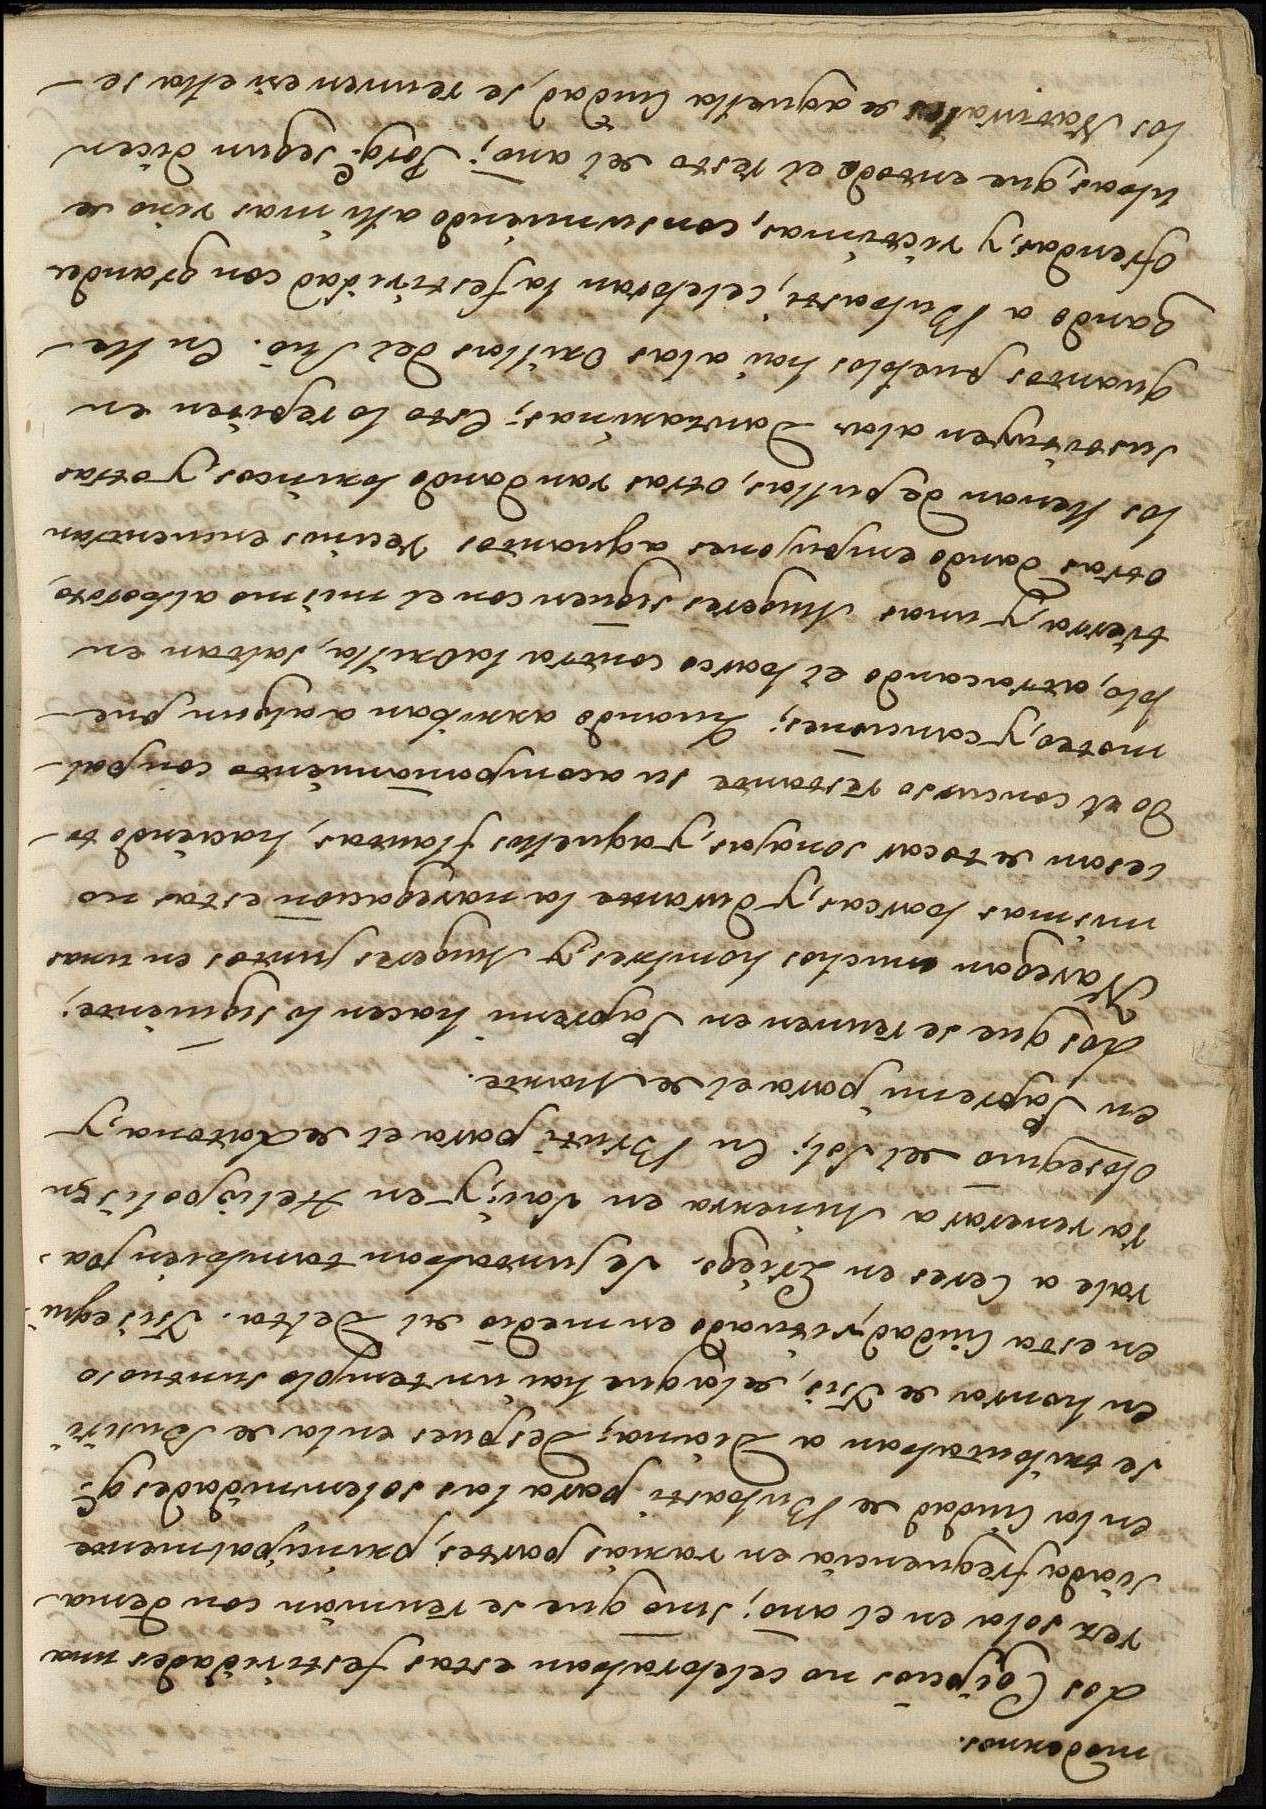 modernos.
Los Egipcios no celebraban estas festividades una
vez sola en el año; sino que se reunián con dema
siada frequencia en varias partes, principalmente
en la Ciudad de Bubasti para las solemnidades q.e
se tributaban a Diana; despues en la de Busiri
en honrra de Isis, de la que hai un templo suntuoso
en esta Ciudad, situado en medio del Delta. Isis equi-
vale a Ceres en Griego. Se juntaban tambien pa-
ra venerar a Minerva en Sais; y en Heliopolis en
obsequio del Sol; En Bruti para el de Latona, y
en Papremi para el de Marte.
Los que se reunen en Papremi hacen lo siguiente;
Navegan muchos hombres, y Mugeres juntos en unas
mismas barcas, y durante la navegacion estas no
cesan de tocar sonajas, y aquellos flautas, haciendo to-
do el concurso restante su acompañamiento con pal-
moteo, y canciones; Quando arriban a algun pue-
blo, atracando el barco contra la Orilla, saltan en
tierra, y unas Mugeres siguen con el mismo alboroto,
otras dando empujones a quantos vecinos encuentran
los llenan de pullas, otras van dando brincos, y otras
sustituyen a las Danzarinas; Esto lo repiten en
quantos pueblos hai a las Orillas del Rio. En lle-
gando a Bubasti, celebran la festividad con grandes
Ofrendas, y victimas, consumiendo alli mas vino de
Ubas, que en todo el resto del año; Porq.e segun dicen
los Naturales de aquella Ciudad, se reunen en ella se-